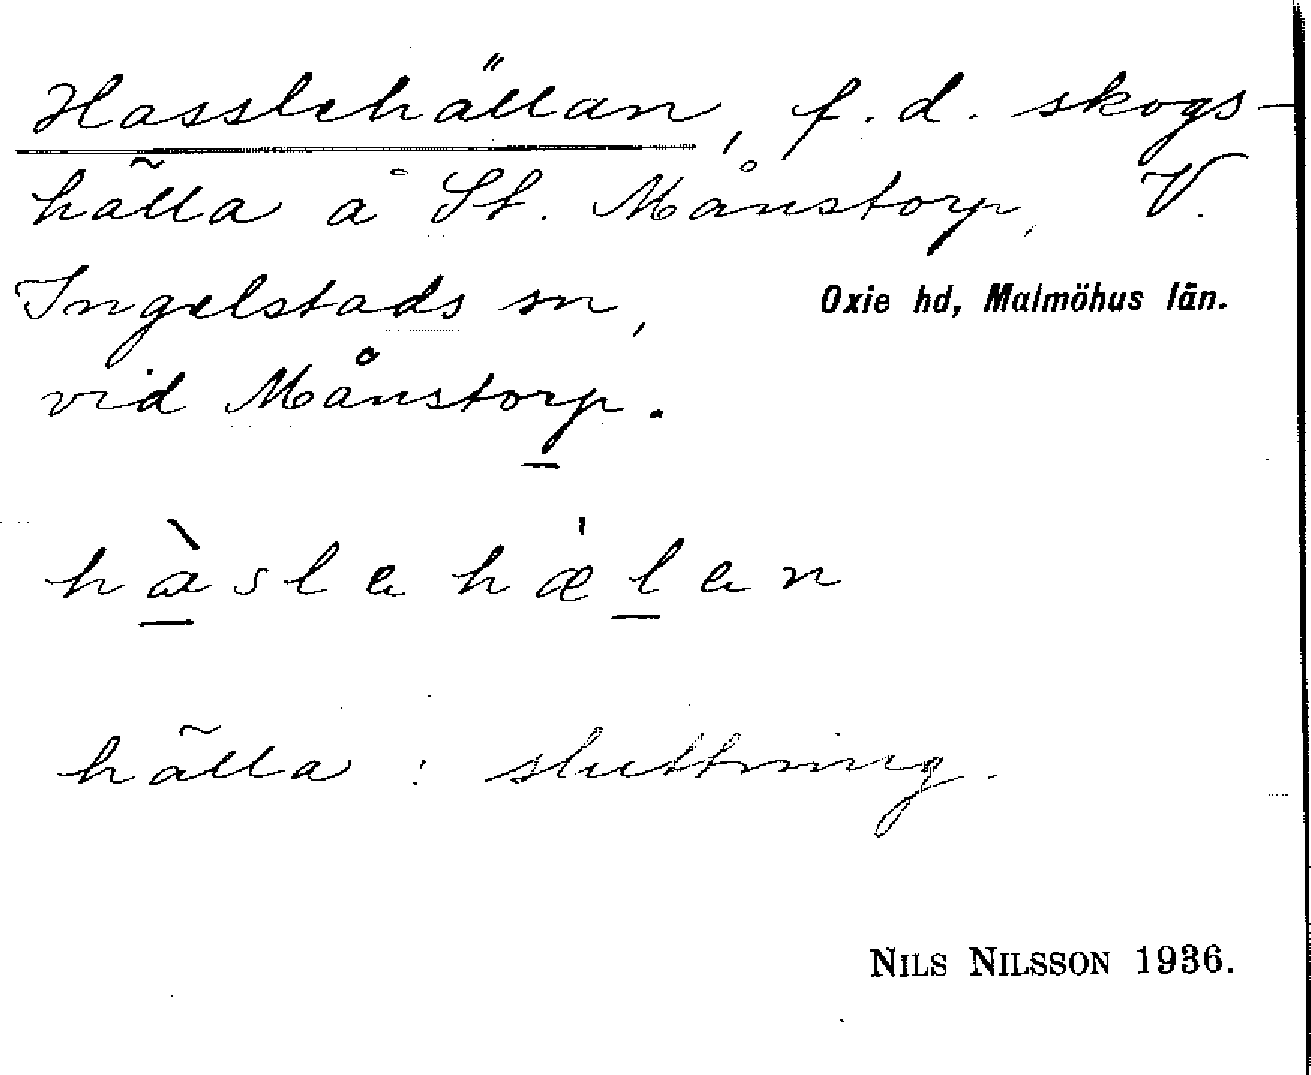 Hasslehällan, f.d. skogs-
hälla å St. Månstorp, V.
Ingelstads sn, Oxie hd, Malmöhus län.
vid Månstorp.
hàslahæ̍lan
hälla: sluttning.
NILS NILSSON 1936.